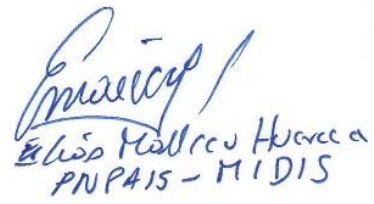 Elías Mallcco Huarcca
PNPAIS - MIDIS